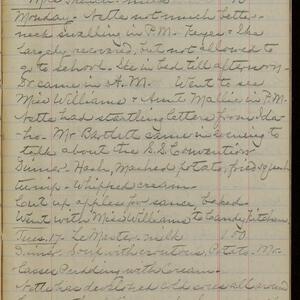 Monday - Nette not much better -
neck swelling in P.M. Keyes & Ike
largely recovered, but not allowed to
go to school. Lee in bed till afternoon.
Dr came in A.M. Went to see
Miss Williams & Aunt Mallie in P.M.
Nette had startling letters from Ida-
ho. Mr Bartlett came in evening to
talk about the S.S. Convention
Dinner - Hash, Mashed potato, fried squash
Whipped cream.
Cut up apples for sauce, baked.
Went with Miss Williams to Candy Kitchen
Tues. 17 - Le Master - milk
Dinner Soup with croutons, Potato - Mo-
lasses Pudding with cream.
Nette has developed cold sores all around